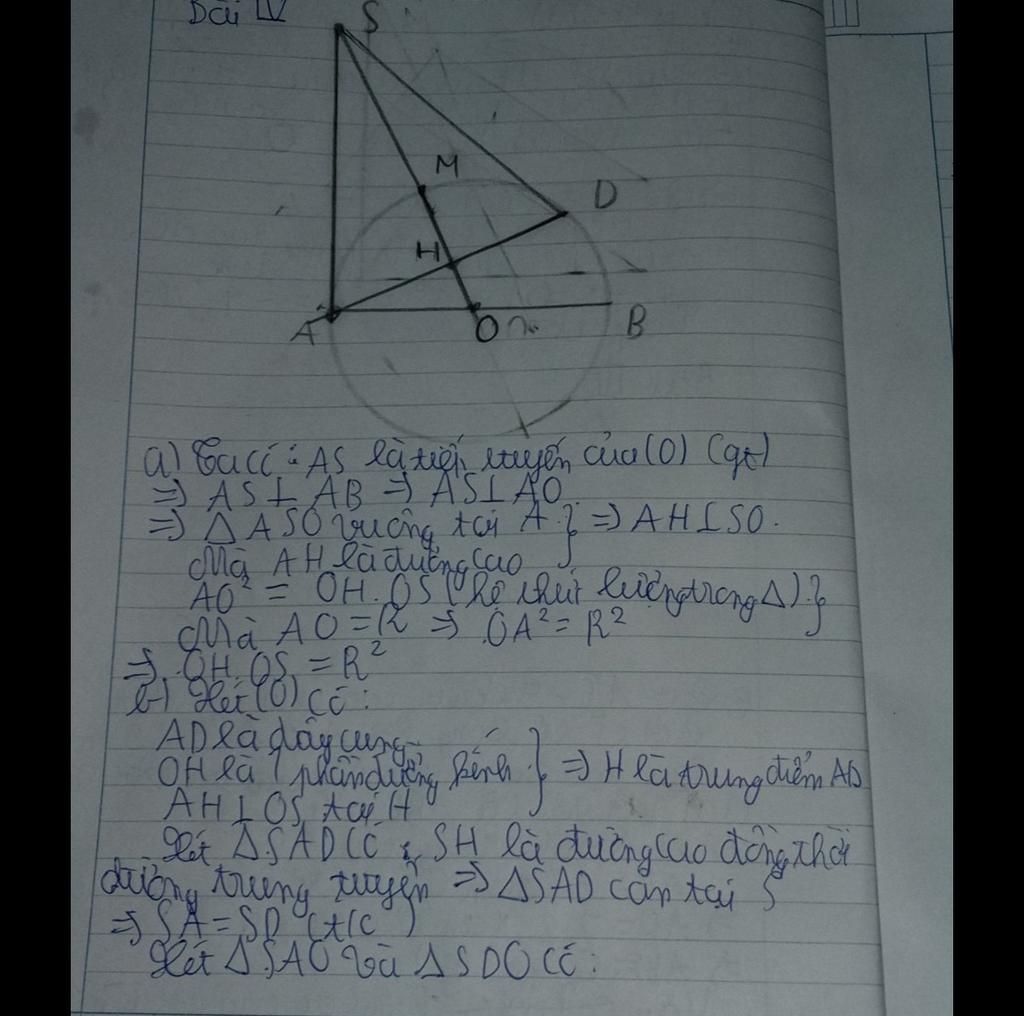 Bài IV
S
M
D
H
A
O
B
a) Ta có : AS là tiếp tuyến của (O) (gt)
=> AS ⊥ AB => AS ⊥ AO.
=> Δ ASO vuông tại A } => AH ⊥ SO.
Mà AH là đường cao
AO² = OH.OS (hệ thức lượng trong Δ).}
Mà AO = R => OA² = R²
=> OH.OS = R²
b) Xét (O) có :
AD là dây cung
OH là 1 phần đường kính } => H là trung điểm AD
AH ⊥ OS tại H
Xét ΔSAD có : SH là đường cao đồng thời
đường trung tuyến => ΔSAD cân tại S
=> SA = SD (t/c )
Xét ΔSAO và ΔSDO có :